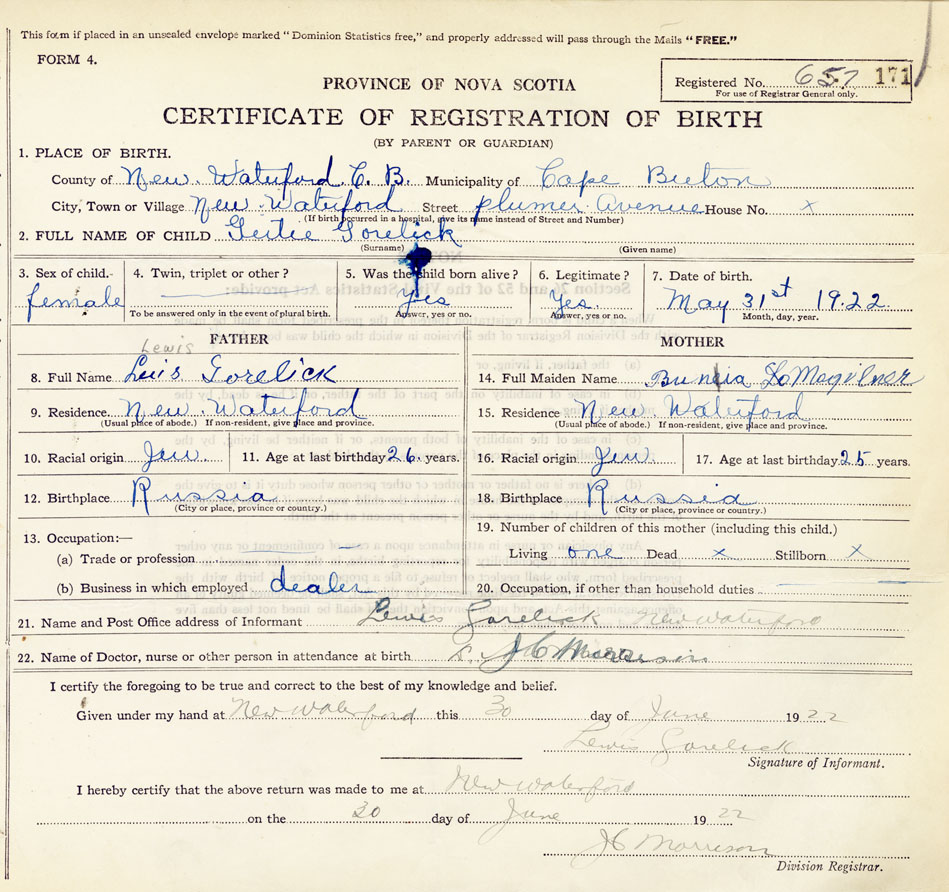 This form if placed in an unsealed envelope marked "Dominion Statistics free," and properly addressed will pass through the Mails "FREE."
FORM 4.
Registered No. 657 171
For use of Registrar General only.
PROVINCE OF NOVA SCOTIA
CERTIFICATE OF REGISTRATION OF BIRTH
(BY PARENT OR GUARDIAN)
1. PLACE OF BIRTH.
County of New Waterford C. B. Municipality of Cape Breton
City, Town or Village New Waterford Street plumer Avenue House No. x
(If birth occurred in a hospital, give its name instead of Street and Number)
2. FULL NAME OF CHILD Gertie Gorelick
(Surname) (Given name)
3. Sex of child. 4. Twin, triplet or other? 5. Was the child born alive? 6. Legitimate? 7. Date of birth.
female yes Yes. May 31st 1922
To be answered only in the event of plural birth. Answer, yes or no. Answer, yes or no. Month, day, year.
FATHER MOTHER
Lewis
8. Full Name Luis Gorelick 14. Full Maiden Name
9. Residence New Waterford 15. Residence New Waterford
(Usual place of abode.) If non-resident, give place and province. (Usual place of abode.) If non-resident, give place and province.
10. Racial origin Jew. 11. Age at last birthday 26 years. 16. Racial origin Jew. 17. Age at last birthday 25 years.
12. Birthplace Russia 18. Birthplace Russia
(City or place, province or country.) (City or place, province or country.)
13. Occupation:— 19. Number of children of this mother (including this child.)
(a) Trade or profession Living one Dead x Stillborn x
(b) Business in which employed dealer 20. Occupation, if other than household duties
21. Name and Post Office address of Informant Lewis Gorelick New Waterford
22. Name of Doctor, nurse or other person in attendance at birth J C Morrison
I certify the foregoing to be true and correct to the best of my knowledge and belief.
Given under my hand at New Waterford this 30 day of June 1922
Lewis Gorelick
Signature of Informant.
I hereby certify that the above return was made to me at New Waterford
on the 30 day of June 1922
J C Morrison
Division Registrar.